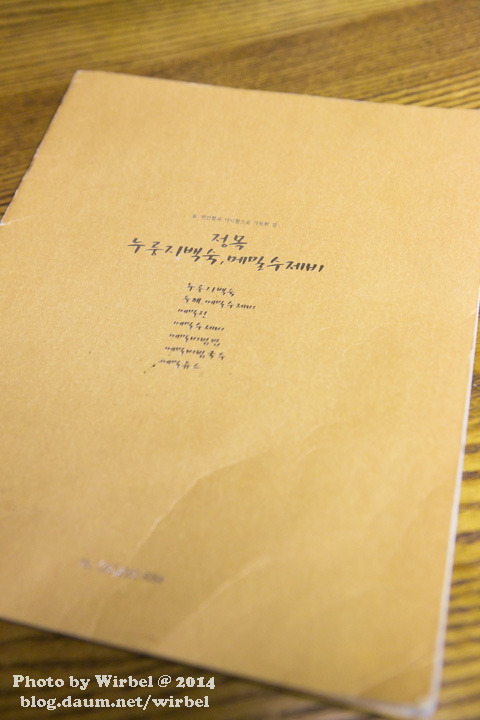 정목
누룽지백숙, 메밀수제비
누룽지백숙
들깨 메밀수제비
메밀전
메밀수제비
메밀비빔밥
메밀비빔국수
Photo by Wirbel @ 2014
blog.daum.net/wirbel